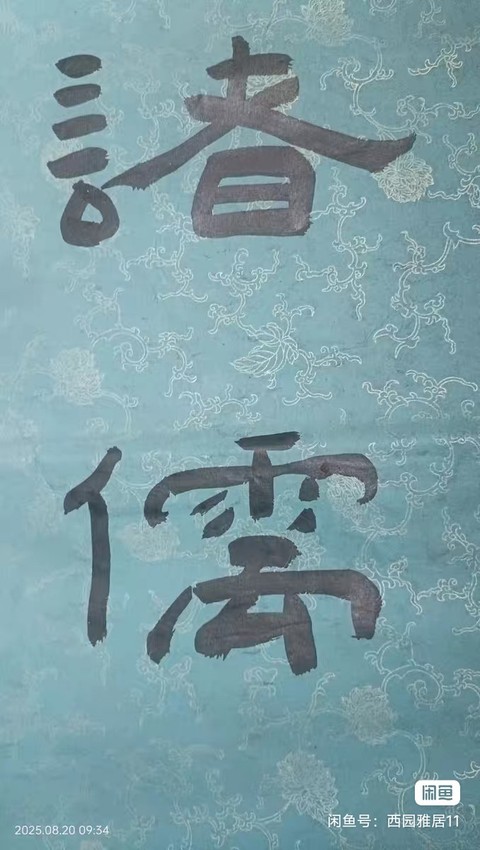 諸
儒
闲鱼
闲鱼号：西园雅居11
2025.08.20 09:34